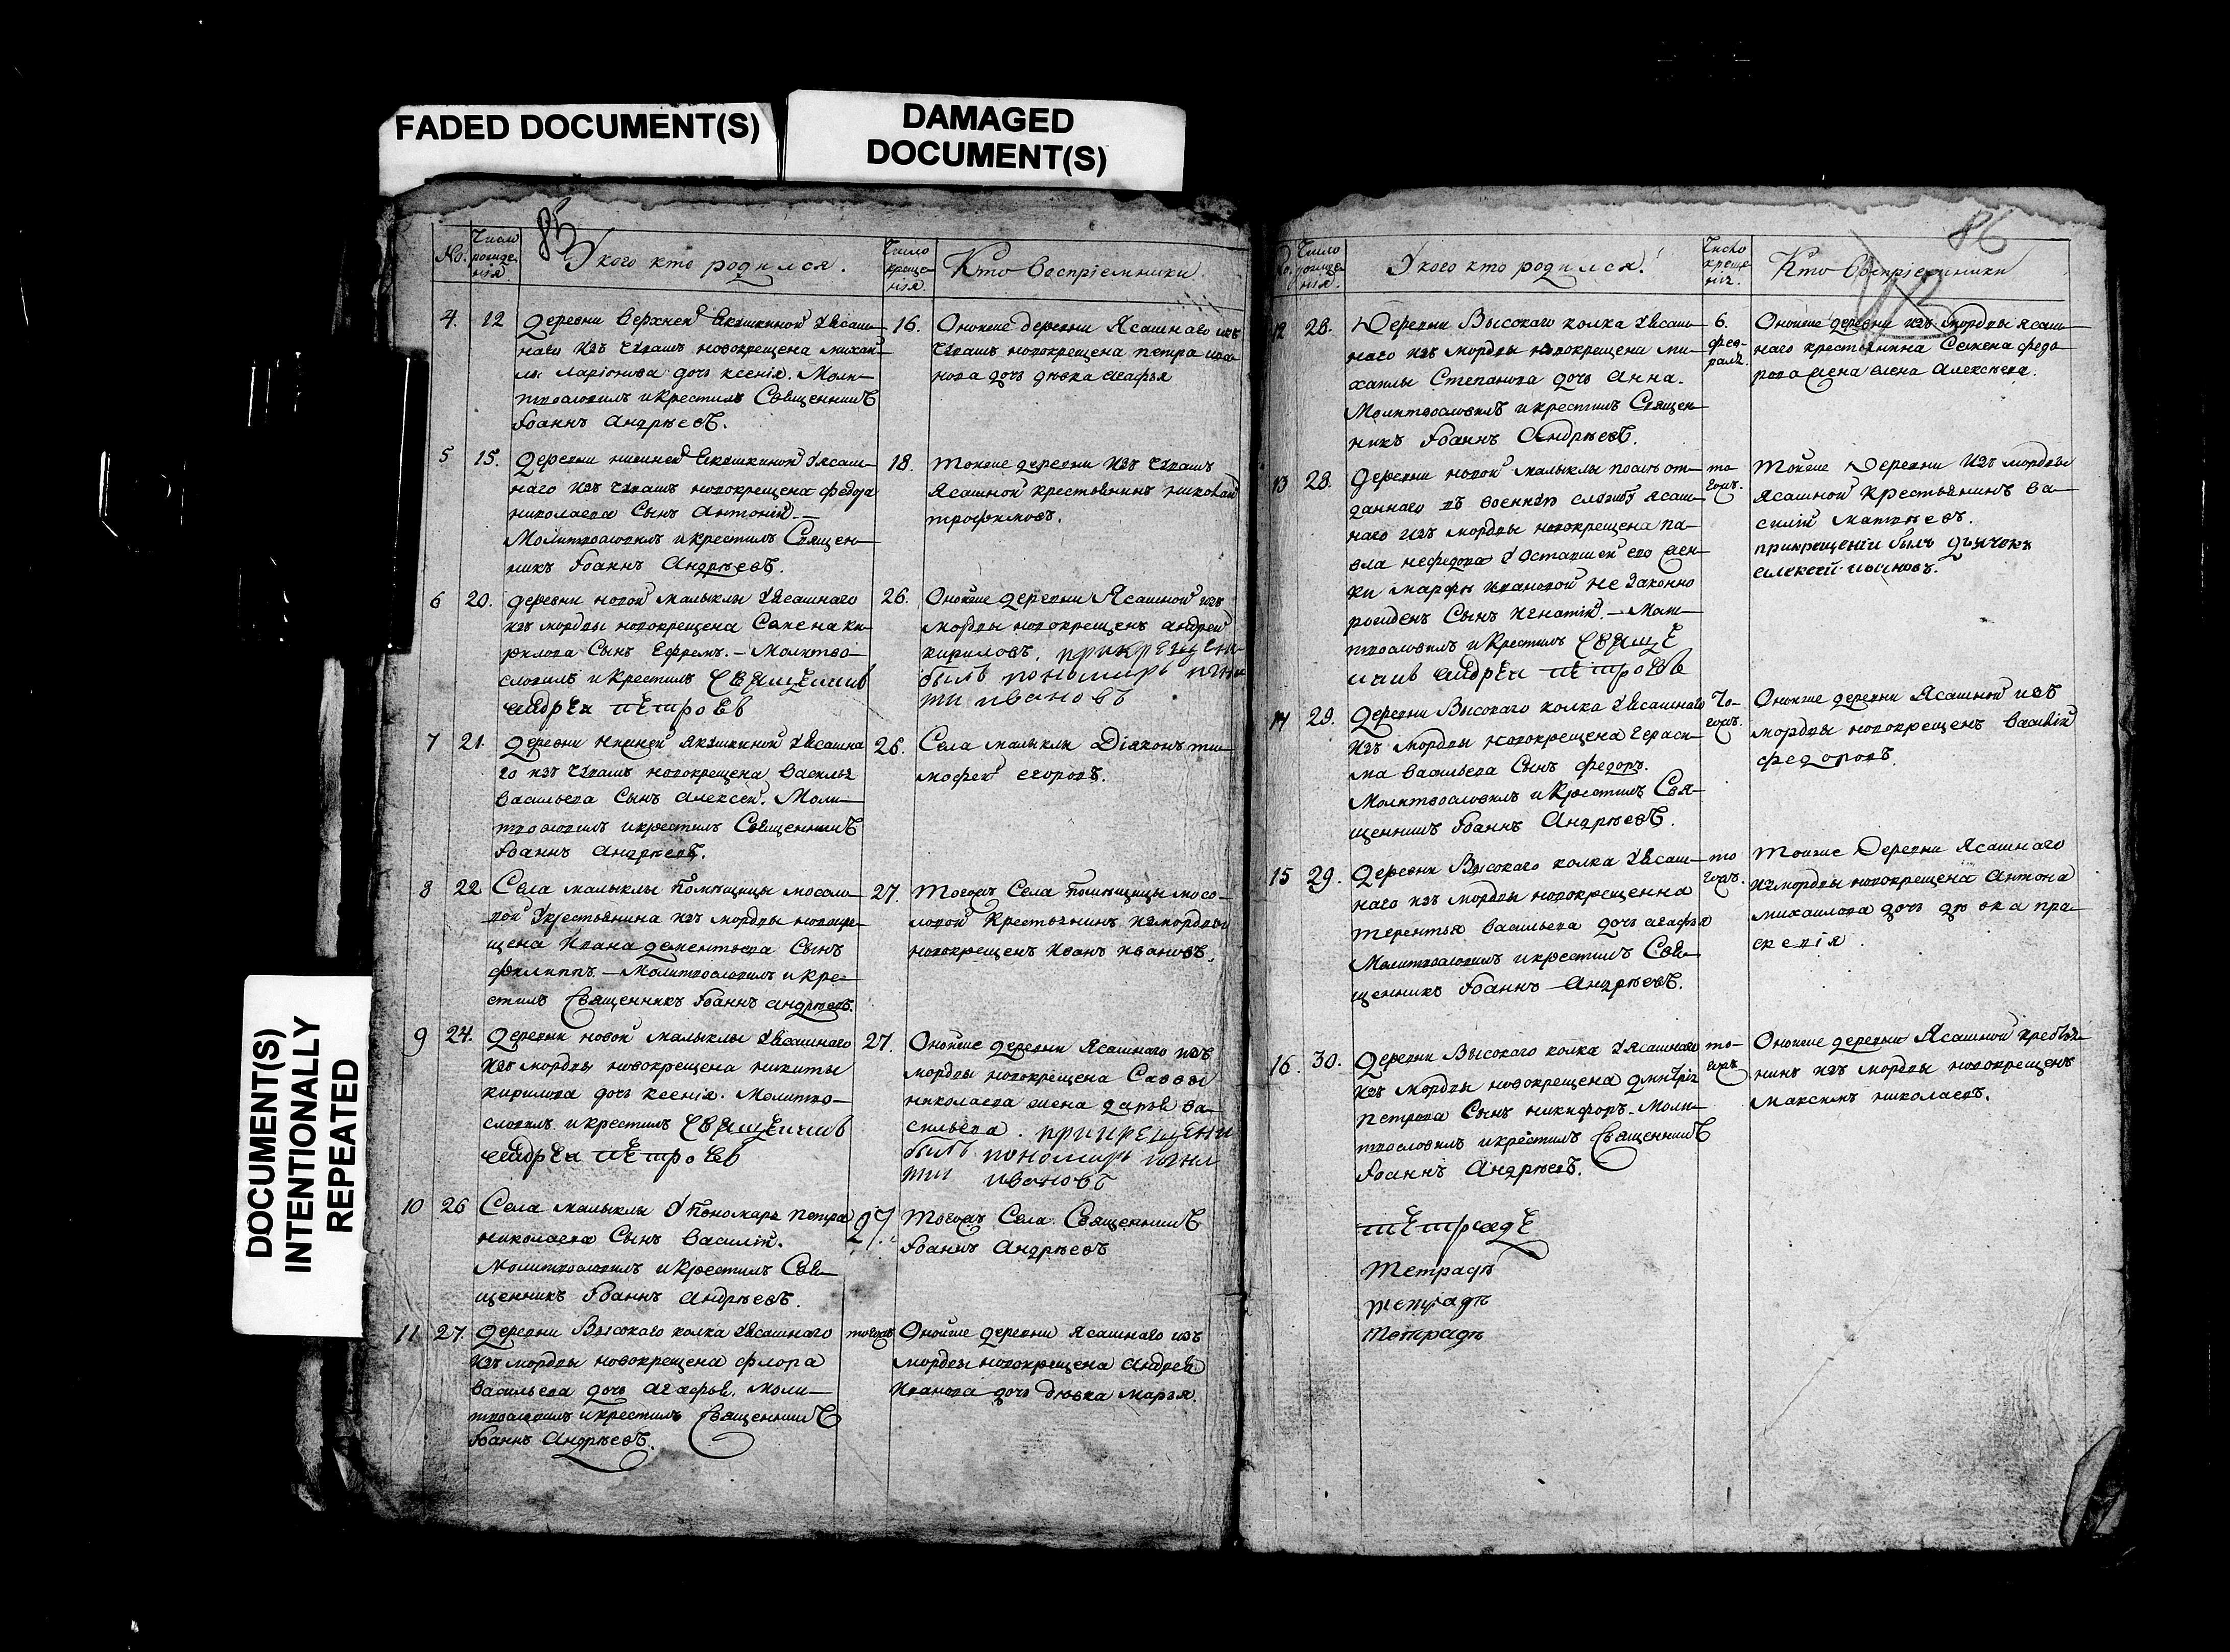 FADED DOCUMENT(S)
DAMAGED
DOCUMENT(S)
DOCUMENT(S)
INTENTIONALLY
REPEATED
85
No.
Число
рожде-
нія.
У кого кто родился.
Число
креще-
нія.
Кто воспріемники
4. 12
деревни верхней Екашкиной У ясаш-
наго изъ чювашъ новокрещена михай-
лы ларіонова дочь ксенія. Моли-
твословилъ и крестилъ Священникъ
Іоаннъ Андрѣевъ.
16.
Оножже деревни Ясашнаго изъ
чювашъ новокрещена петра ива-
нова дочь дѣвка агафья
5 15.
деревни нижней Екашкиной У ясаш-
наго изъ чювашъ новокрещена федора
николаева Сынъ Антоній.—
Молитвословилъ и крестилъ Священ-
никъ Іоаннъ Андрѣевъ.
18.
тоежже деревни изъ чювашъ
Ясашной крестьянинъ николай
трофимовъ.
6 20.
деревни новой малыклы У ясашнаго
изъ мордвы новокрещена Семена ки-
рилова Сынъ Ефремъ.— Молитво-
словилъ и крестилъ
андрей петровъ
26.
Оножже деревни Ясашной изъ
мордвы новокрещенъ андрей
кириловъ. при крещени
былъ пономарь игна
ти ивановъ
7 21.
деревни нижней якашкиной У ясашна
го изъ чювашъ новокрещена василья
васильева Сынъ алексей. Моли-
твословилъ и крестилъ Священникъ
Іоаннъ Андрѣевъ.
26.
Села малыклы Діяконъ ти-
мофей егоровъ.
8 22
Села малыклы помѣщицы мосоло-
вой У крестьянина изъ мордвы новокре-
щена Ивана дементьева Сынъ
филиппъ.— Молитвословилъ и кре-
стилъ Священникъ Іоаннъ андрѣевъ.
27.
тогожъ Села помѣщицы мосо-
ловой крестьянинъ изъ мордвы
новокрещенъ Иванъ ивановъ.
9 24.
деревни новой малыклы У ясашнаго
изъ мордвы новокрещена никиты
кирилова дочь ксенія. Молитво-
словилъ и крестилъ
андрей петровъ
27.
Оножже деревни Ясашнаго изъ
мордвы новокрещена Саввы
николаева жена дарья ва-
сильева. при крещени
былъ пономарь игна
ти ивановъ
10 26
Села малыклы У пономаря петра
николаева Сынъ Василій.
Молитвословилъ и крестилъ Свя-
щенникъ Іоаннъ андрѣевъ.
27.
тогожъ Села Священникъ
Іоаннъ Андрѣевъ
11 27.
деревни Высокаго колка У ясашнаго
изъ мордвы новокрещена флора
васильева дочь агафья. Моли-
твословилъ и крестилъ Священникъ
Іоаннъ Андрѣевъ.
тогожъ
Оножже деревни Ясашнаго изъ
мордвы новокрещена андрея
Иванова дочь дѣвка марья.
86
Число
рожде-
нія.
У кого кто родился.
Число
креще-
нія.
Кто воспріемники
12 28.
Деревни Высокаго колка У ясаш-
наго изъ мордвы новокрещена ми-
хаилы Степанова дочь анна.
Молитвословилъ и крестилъ Священ-
никъ Іоаннъ Андрѣевъ.
6.
фев-
раля.
Оножже деревни изъ мордвы ясаш-
наго крестьянина Семена федо
рова жена елена Алексѣева.
13 28.
деревни новой малыклы послѣ от-
даннаго въ военную службу ясаш-
наго изъ мордвы новокрещена па-
вла нефедова У оставшей его жен-
ки марфы ивановой не законно
рожденъ Сынъ игнатій.— Моли-
твословилъ и крестилъ
андрей петровъ
то
гожъ.
тойже Деревни изъ мордвы
ясашной крестьянинъ ва-
силій матвѣевъ.
при крещеніи былъ дьячокъ
алексей
14 29.
деревни Высокаго колка У ясашнаго
изъ мордвы новокрещена гераси-
ма васильева Сынъ федоръ.
Молитвословилъ и крестилъ Свя-
щенникъ Іоаннъ Андрѣевъ.
То-
гожъ.
Оножже деревни Ясашной изъ
мордвы новокрещенъ василій
федоровъ.
15 29.
деревни Высокаго колка У ясаш-
наго изъ мордвы новокрещенна
терентья васильева дочь агафья
Молитвословилъ и крестилъ Свя-
щенникъ Іоаннъ Андрѣевъ.
то
гожъ.
тоежже Деревни Ясашнаго
изъ мордвы новокрещена Антона
михаилова дочь дѣвка пра-
сковія.
16. 30.
деревни Высокаго колка У ясашнаго
изъ мордвы новокрещена дмитрія
петрова Сынъ никифоръ. Моли-
твословилъ и крестилъ Священникъ
Іоаннъ Андрѣевъ.
то-
гожъ
Оножже деревни Ясашной крестья-
нинъ изъ мордвы новокрещенъ
максимъ николаевъ.
тетраде
тетрадь
тетрадь
тетрадь